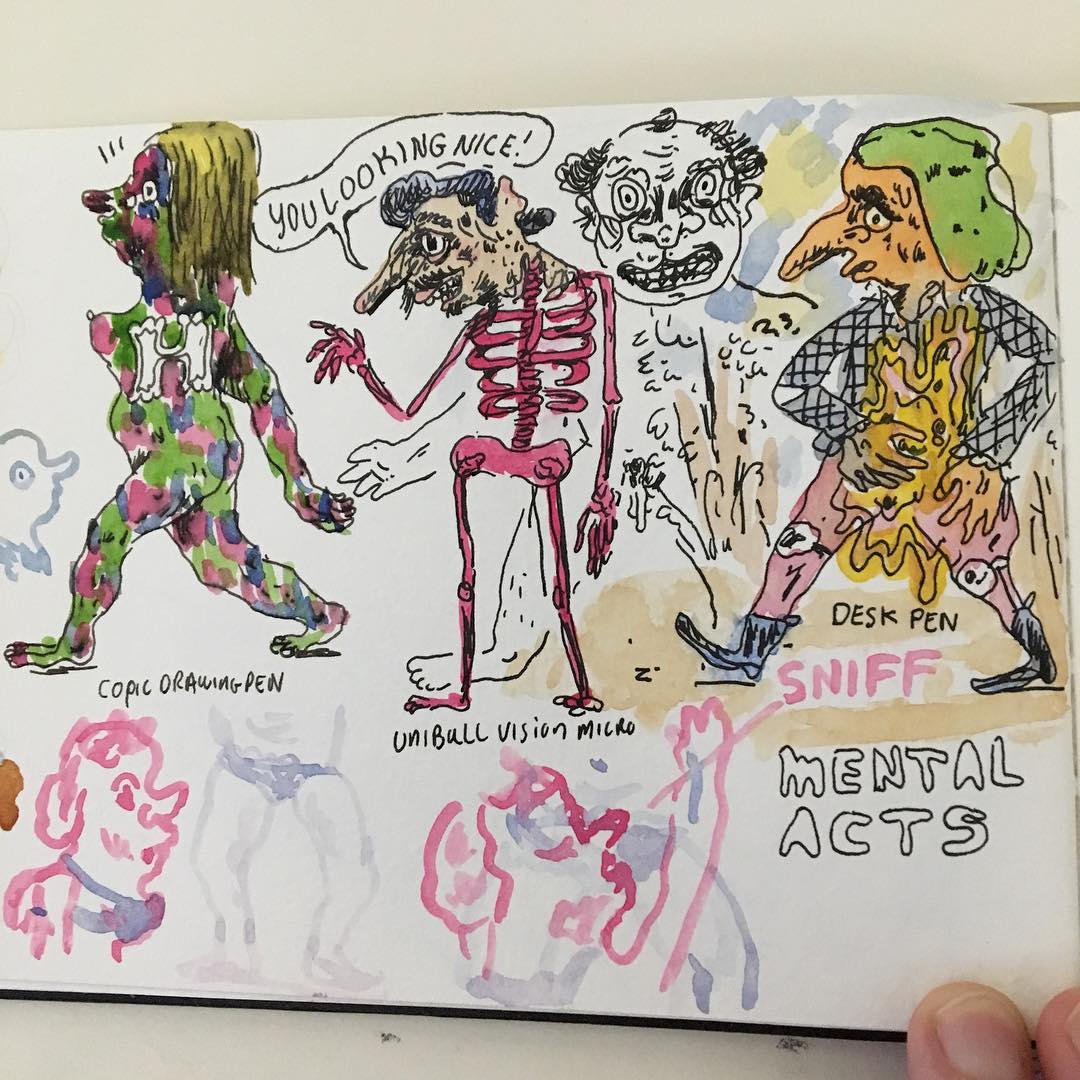 YOU LOOKING NICE!
H
COPIC DRAWING PEN
UNIBALL VISION MICRO
DESK PEN
SNIFF
MENTAL
ACTS